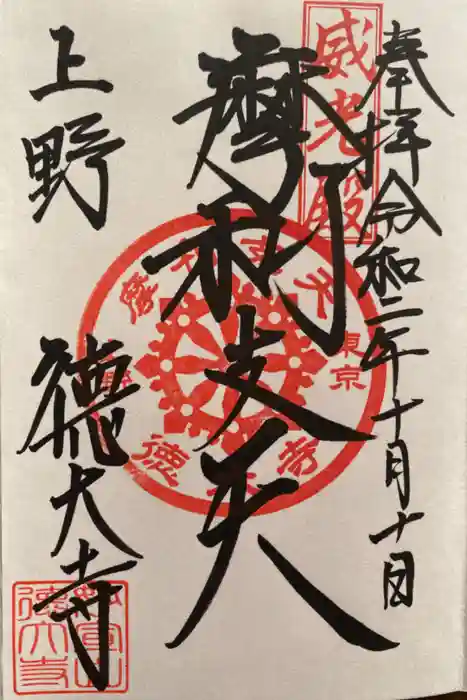 奉拝 令和二年十月十日
威光殿
摩利支天
東京
摩利支天
上野
徳大寺
上野 徳大寺